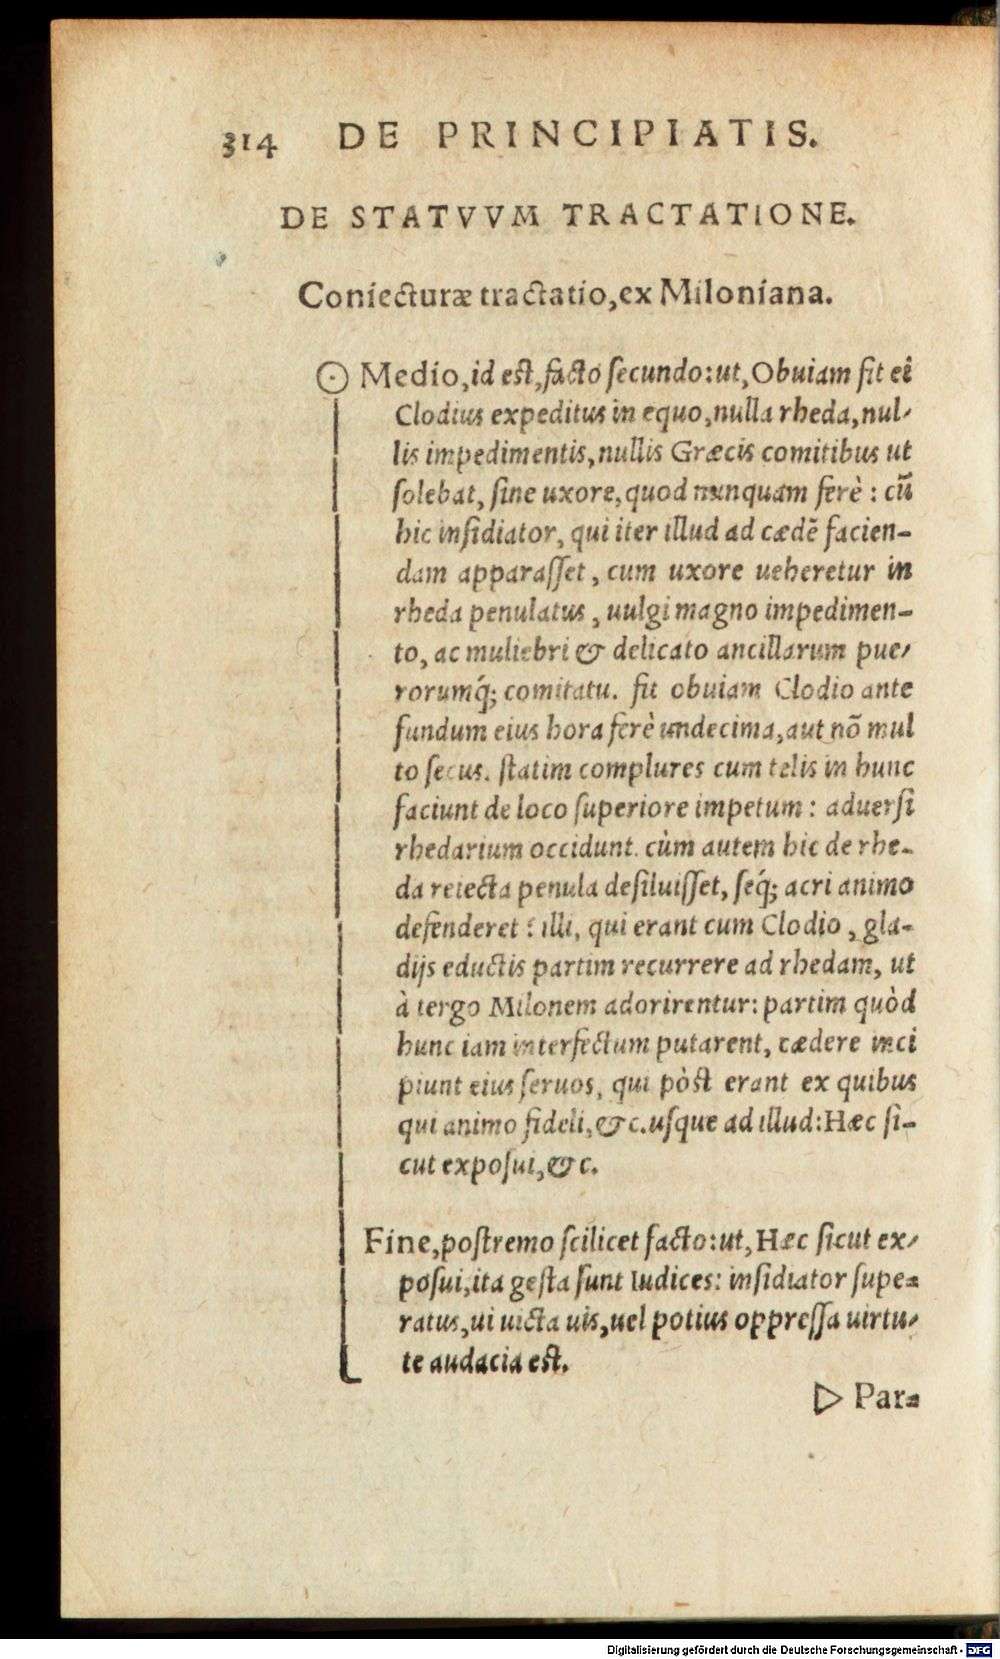 314 DE PRINCIPIATIS.
DE STATVVM TRACTATIONE.
Coniecturæ tractatio, ex Miloniana.
☉ Medio, id est, facto secundo: ut, Obuiam fit ei
Clodius expeditus in equo, nulla rheda, nul-
lis impedimentis, nullis Græcis comitibus ut
solebat, sine uxore, quod nunquam ferè: cũ
hic insidiator, qui iter illud ad cædẽ facien-
dam apparasset, cum uxore ueheretur in
rheda penulatus, uulgi magno impedimen-
to, ac muliebri & delicato ancillarum pue-
rorumq́; comitatu. fit obuiam Clodio ante
fundum eius hora ferè undecima, aut nõ mul
to secus. statim complures cum telis in hunc
faciunt de loco superiore impetum: aduersi
rhedarium occidunt. cùm autem hic de rhe-
da reiecta penula desiluisset, seq́; acri animo
defenderet: illi, qui erant cum Clodio, gla-
dijs eductis partim recurrere ad rhedam, ut
à tergo Milonem adorirentur: partim quòd
hunc iam interfectum putarent, cædere inci
piunt eius seruos, qui pòst erant ex quibus
qui animo fideli, &c. usque ad illud: Hæc si-
cut exposui, &c.
Fine, postremo scilicet facto: ut, Hæc sicut ex-
posui, ita gesta sunt Iudices: insidiator supe-
ratus, ui uicta uis, uel potius oppressa uirtu-
te audacia est.
▷ Par-
Digitalisierung gefördert durch die Deutsche Forschungsgemeinschaft - DFG